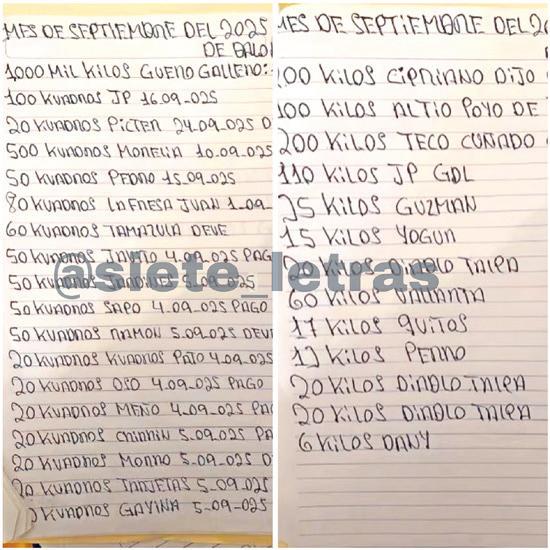 MES DE SEPTIEMBRE DEL 2025
DE BALO
1000 MIL KILOS GUERO GALLERO:
100 KUADROS JP 16-09-025
20 KUADROS PICTER 24-09-025 D
500 KUADROS MORELIA 10-09-025
50 KUADROS PEDRO 15-09-025
80 KUADROS LA FRESA JUAN 1-09-
60 KUADROS TAMAZULA DEVE
50 KUADROS 4-09-025 PAG
50 KUADROS 5-09-025
50 KUADROS SAPO 4-09-025 PAGO
50 KUADROS RAMON 5-09-025 DEVE
20 KUADROS KUADROS PATO 4-09-025
20 KUADROS OSO 4-09-025 PAGO
20 KUADROS MEÑO 4-09-025 PA
20 KUADROS CHIRRIN 5-09-025 PA
20 KUADROS MORRO 5-09-025 D
20 KUADROS TARJETAS 5-09-025
KUADROS GAVINA 5-09-025
MES DE SEPTIEMBRE DEL 20
00 KILOS CIPRIANO DIJO
100 KILOS ALTIO POYO DE
200 KILOS TECO CUÑADO
110 KILOS JP GDL
25 KILOS GUZMAN
15 KILOS YOGUR
20 KILOS DIABLO TALPA
60 KILOS VALLARTA
17 KILOS QUITOS
12 KILOS PERRO
20 KILOS DIABLO TALPA
20 KILOS DIABLO TALPA
6 KILOS DANY
@siete_letras